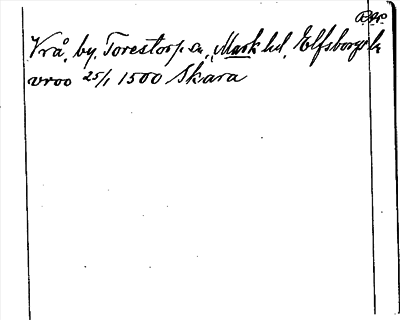 Vrå, by, Torestorp sn, Mark hd, Elfsborgs l.
vroo 25/1 1500 Skara